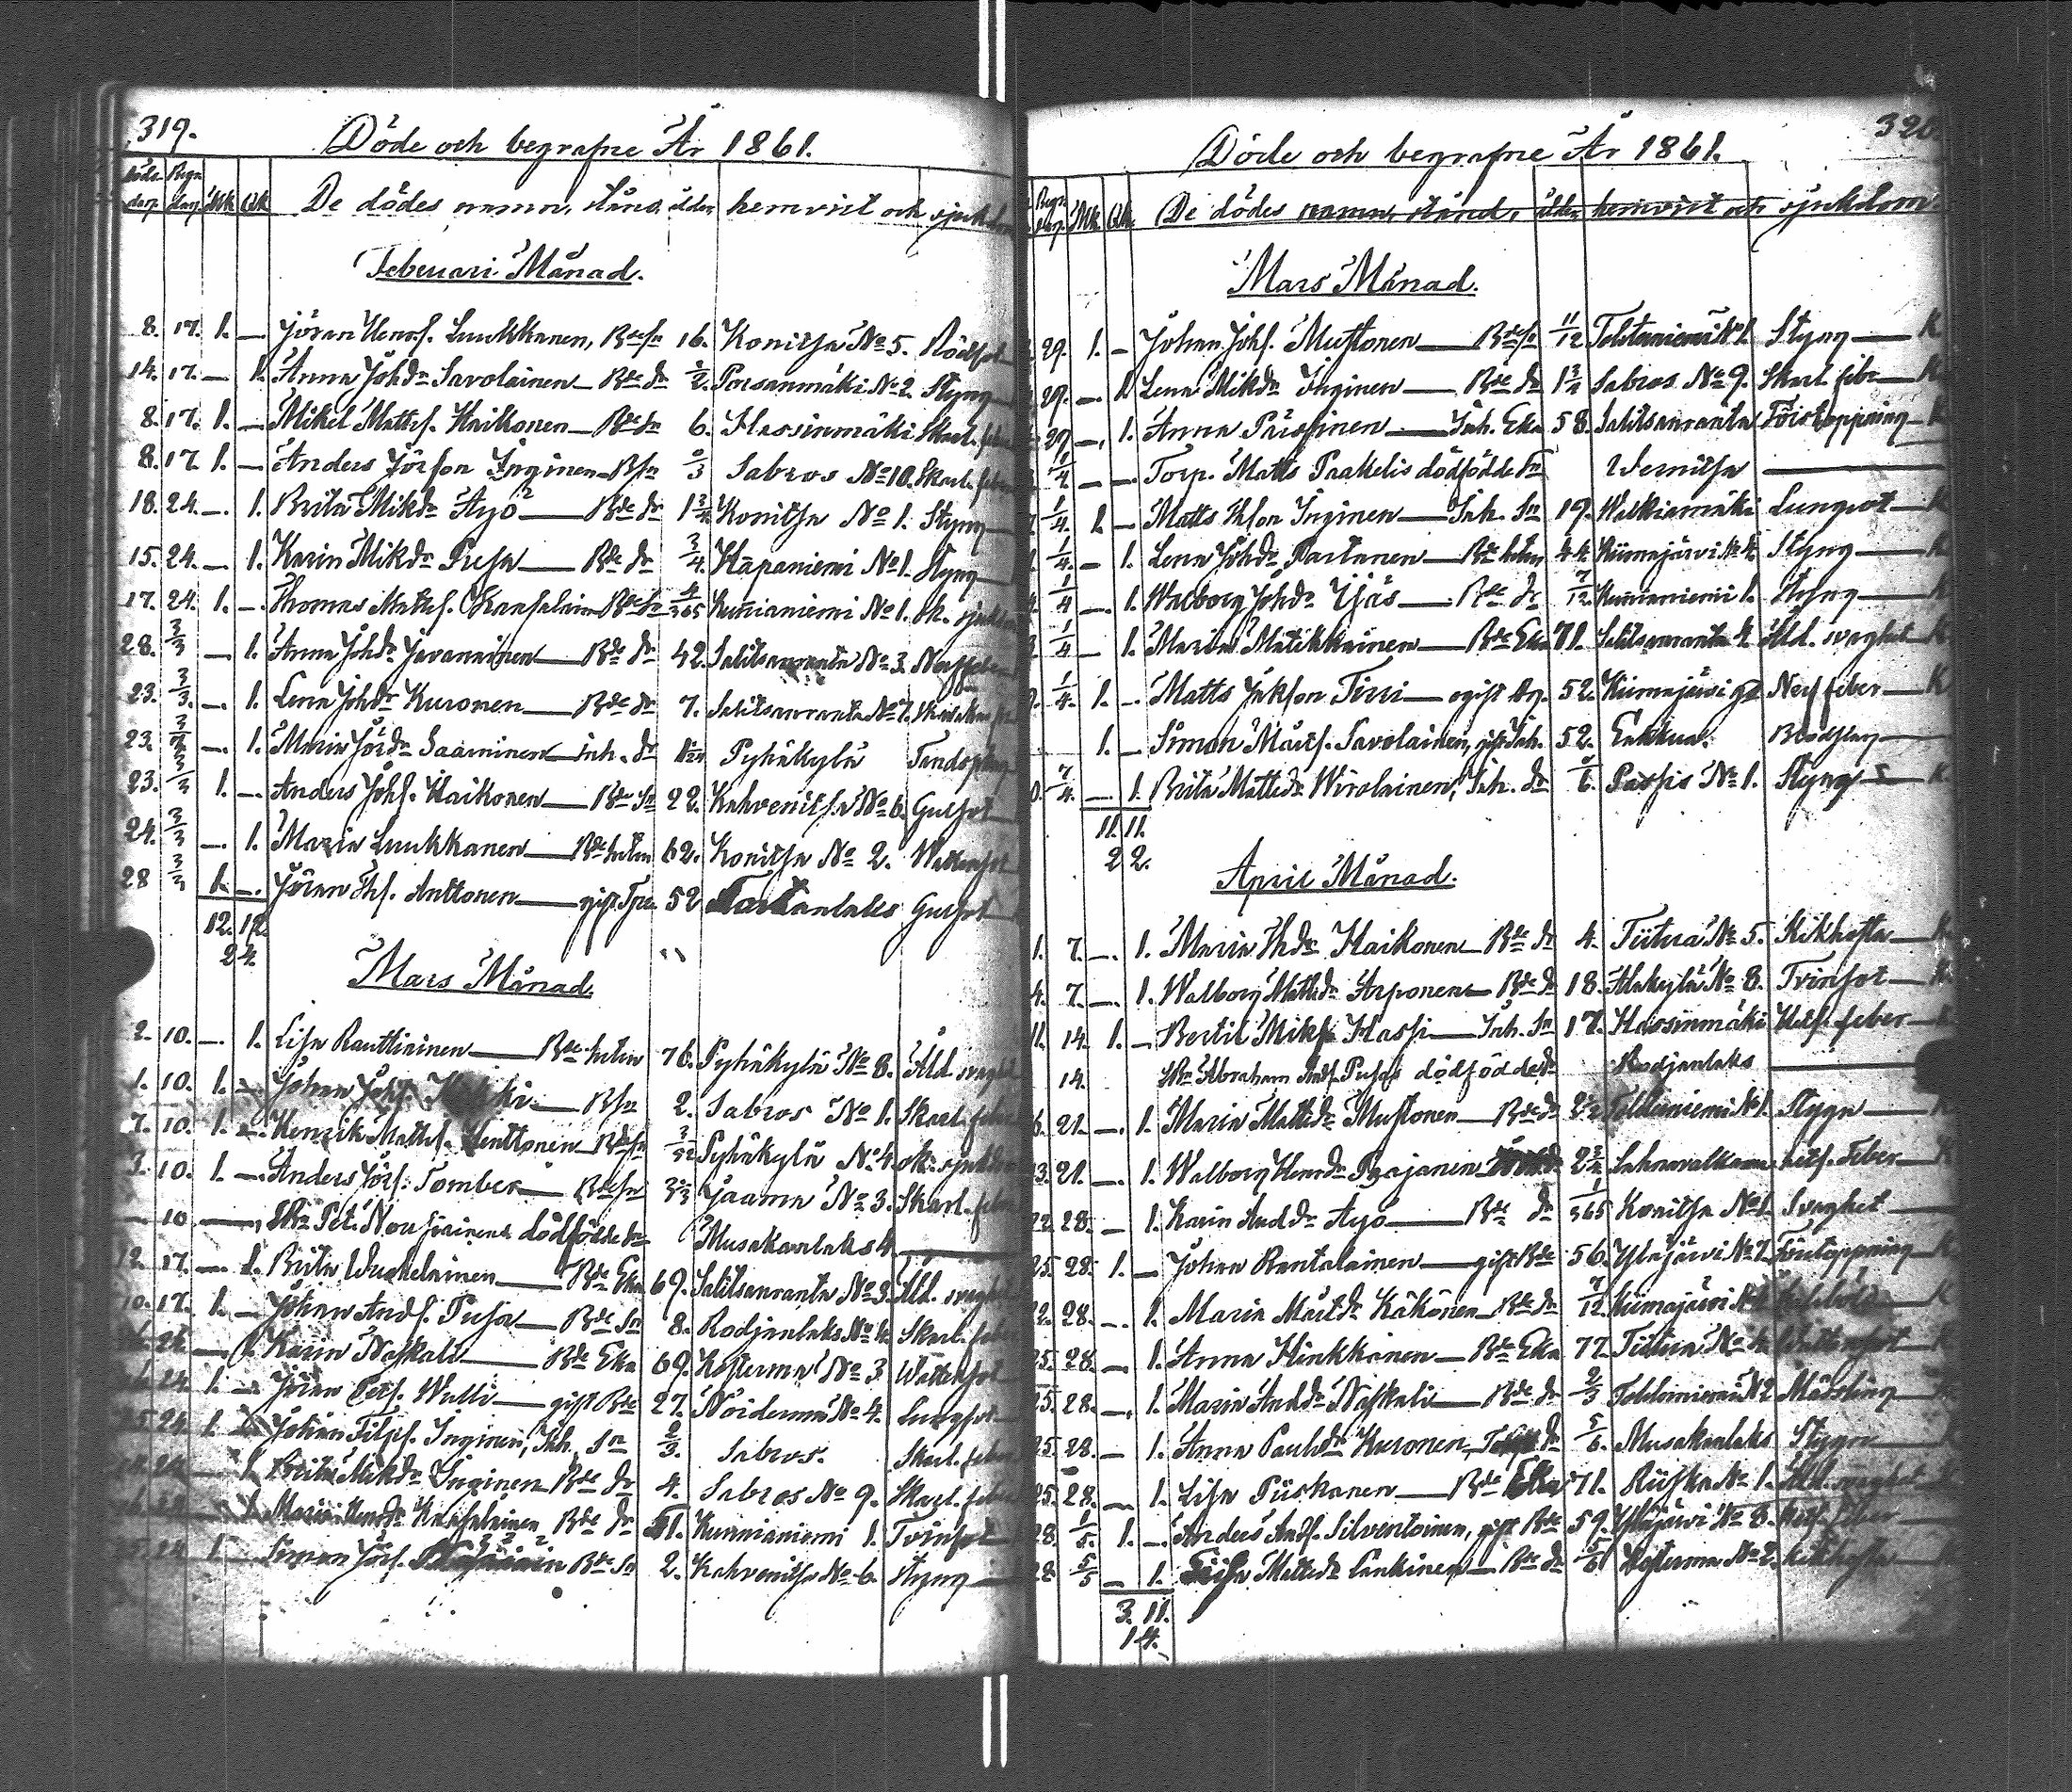 319.
Döde och begrafne År 1861.
Döds dag. Begr. dag. Mk. Qk. De dödes namn, stånd, ålder, hemvist och sjukdom
Februari Månad.
8. 17. 1. — Jöran Henrs. Luukkanen, Bdesn 16. Konitsa No 5. Rödsot
14. 17. — 1. Anna Johdr Savolainen — Bde dr Porsanmäki No 2. Styng
8. 17. 1. — Mikel Matts. Haikonen — Bde Sn 6. Hassinmäki Skarl. feber
8. 17. 1. — Anders Jörson Inginen — Bsn 2/3 Sabros No 10. Skarl. feber
18. 24. — 1. Brita Mikdr Äyö — Bde dr 1 3/4 Konitsa No 1. Styng
15. 24. — 1. Karin Mikdr Pusa — Bde dr 3/4. Hapaniemi No 1. Styng
17. 24. 1. — Thomas Matts. Bde Sn 4/365 Kunnianiemi No 1. ok. sjukdom
28. 3/3 — 1. Anna Johdr Javanainen — Bde dr 42. Salitsanranta No 3.
23. 3/3. — 1. Lena Johdr Kuronen — Bde dr 7. Salitsanranta No 7.
23. 3/3 — 1. Maria Jördr Saaminen — inh. dr Pyhäkylä
23. 3/3 1. — Anders Johs. Haikonen — Bde Sn 22. Kahvenitsa No 6. Gulsot
24. 3/3 — 1. Maria Luukkanen — Bde 62. Konitsa No 2. Wattusot
28 3/3 1. — Jöran Ths. Anttonen — gift 52 Gulsot
12. 12.
24.
Mars Månad.
2. 10. — 1. Lisa Rauttiainen — Bde 76. Pyhäkylä No 8. Åld. svaghet
1. 10. 1. — Johan Johs. — Bsn 2. Sabros No 1. Skarl. feber
7. 10. 1. — Henrik Matts. Henttonen Bdesn 3/52 Pyhäkylä No 4. ok. sjukdom
10. 1. — Anders Jörs. Tomber — Bdesn Jaama No 3. Skarl. feber
— 10 — Pet. Nousiainens dödfödde Musakanlaks 4.
12. 17. — 1. Brita — Bde Eka 69. Salitsanranta No 3. Åld. svaghet
10. 17. 1. — Johan Ands. Pusa — Bde Sn 8. Rodjanlaks No 4. Skarl. feber
24. — 1. Karin Naskali — Bde Eka 69. Kosterma No 3. Wattusot
24. 1. — Jöran Pers. Walli — gift Bde 27. Noiderma No 4. Lungsot
24 1. Johan Filps. Inginen, Inh. Sn 2/3. Sabros. Skarl. feber
1. Brita Mikdr Inginen Bde dr 4. Sabros No 9. Skarl. feber
1. Maria Henrdr Bde dr Kunnianiemi 1. Tvinsot
24 1. Simon Jörs. Bde Sn 2. Kahvenitsa No 6. Styng —
320.
Döde och begrafne År 1861.
Begr. dag. Mk. Qk. De dödes namn, stånd, ålder hemvist och sjukdom
Mars Månad.
29. 1. — Johan Johs. Mustonen — Bdesn 11/12 Tolstaniemi No 1. Styng — K
29. — 1. Lena Mikdr Inginen — Bde dr Sabros No 9. Skarl. feber — K
29 — 1. Anna Pärssinen — Inh. Eka 58. Salitsanranta Förstoppning — K
1/4 — — Torp. Matts Paakelis dödfödde Sn Wernitsa —
1/4. 1. — Matts Thson Inginen — Inh. Sn 19. Walkiamäki Lungsot — K
1/4. — 1. Lena Johdr Partanen — Bde 44. Kiimajärvi No 4. Styng — K
1/4 — 1. Walborg Johdr Äjäs — Bde dr 7/12. Kunnianiemi 1. Styng — K
1/4 — 1. Maria Matikkainen — Bde Eka 71. Salitsanranta 4. Åld. svaghet — K
1/4. 1. — Matts Jakson Tirri — ogift 52. Kiimajärvi Nerffeber — K
1. — Simon Mårts. Savolainen, gift Inh. 52. Enkkua. Blodslag —
7/4. — 1. Brita Mattsdr Wirolainen, Inh. dr Passis No 1. Styng — K.
11. 11.
22.
April Månad.
1. 7. — 1. Maria Thdr Haikonen — Bde dr 4. Tiitua No 5. Kikhosta — K.
4. 7. — 1. Walborg Mattsdr Arponen — Bde dr 18. Alakylä No 8. Tvinsot — K.
11. 14. 1. — Bertil Miks. Hassi — Inh. Sn 17. Hassinmäki Hets. feber —
14. Abraham Ands. Pusas dödfödde Rodjanlaks —
21. — 1. Maria Mattsdr Mustonen — Bde dr Tolstaniemi No 1. Stygn —
21. — 1. Walborg Henrdr Prajanen 2 3/4 Sahnovalkama hets. Feber — K
22. 28. — 1. Karin Anddr Äyö — Bde dr 1/365 Konitsa No 1. Svaghet —
25. 28. 1. — Johan Rantalainen — gift Bde 56. Yläjärvi No 7. Förstoppning — K
22. 28. — 1. Maria Mårtdr Käkönen — Bde dr 7/12 Kiimajärvi No K
25. 28. — 1. Anna Hinkkanen — Bde Eka 77. Tiitua No 4 Wattusot — K
25. 28. — 1. Maria Anddr Naskali — Bde dr 2/3 Tolstaniemi No 2 Mässling —
25. 28. — 1. Anna Paulsdr Kuronen, dr 5/6. Musakanlaks Stygn
25. 28. — 1. Lisa Piiskanen — Bde Eka 71. Riiska No 1. Åld. svaghet
28. 1/5. 1. — Anders Ands. Silventoinen, gift Bde 59. Yläjärvi No 8. hets. feber —
28 5/5 — 1. Mattsdr Lankinen — Bde dr 5/6 Kosterma No 2. Kikhosta
3. 11.
14.